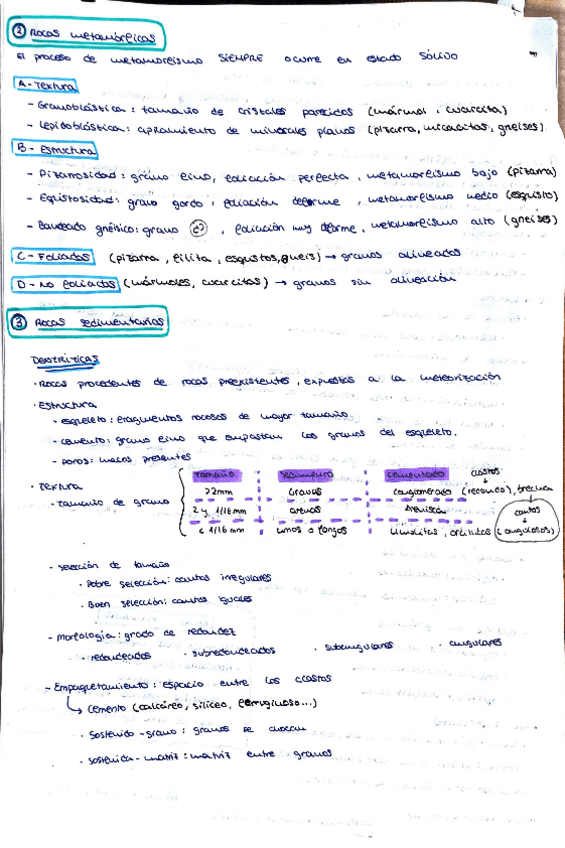 ② Rocas metamórficas
El proceso de metamorfismo SIEMPRE ocurre en estado SÓLIDO
A - Textura
- Granoblástica : tamaño de cristales parecidos (mármol , cuarcita)
- Lepidoblástica : aplanamiento de minerales planos (pizarra, micacitas, gneises)
B - Estructura
- Pizarrosidad : grano fino, foliación perfecta , metamorfismo bajo (pizarra)
- Equistosidad : grano gordo , foliación deforme , metamorfismo medio (esquisto)
- Bandeado gnéisico : grano , foliación muy deforme, metamorfismo alto (gneises)
C - Foliadas (pizarra , filita , esquistos, gneis) → granos alineados
D - No foliadas (mármoles, cuarcitas) → granos sin alineación
③ Rocas sedimentarias
DETRÍTICAS
· Rocas procedentes de rocas preexistentes , expuestas a la meteorización
· Estructura
- esqueleto : fragmentos rocosos de mayor tamaño
- cemento : grano fino que empastan los granos del esqueleto.
- poros : huecos presentes
· Textura
· Tamaño de grano
tamaño sedimento cementado clastos
>2mm Gravas conglomerado (redondo), brecha
2 y 1/16 mm arenas Arenisca cantos
< 1/16 mm limos o fangos limolitas, arcillitas (angulosos)
· Selección de tamaño
· Pobre selección : cantos irregulares
· Buen selección : cantos iguales
- Morfología : grado de redondez
· redondeados · subredondeados · subangulares · angulares
- Empaquetamiento : espacio entre los clastos
↳ Cemento (calcáreo, silíceo, ferruginoso...)
· Sostenido - grano : granos se chocan
· sostenida - matriz : matriz entre granos